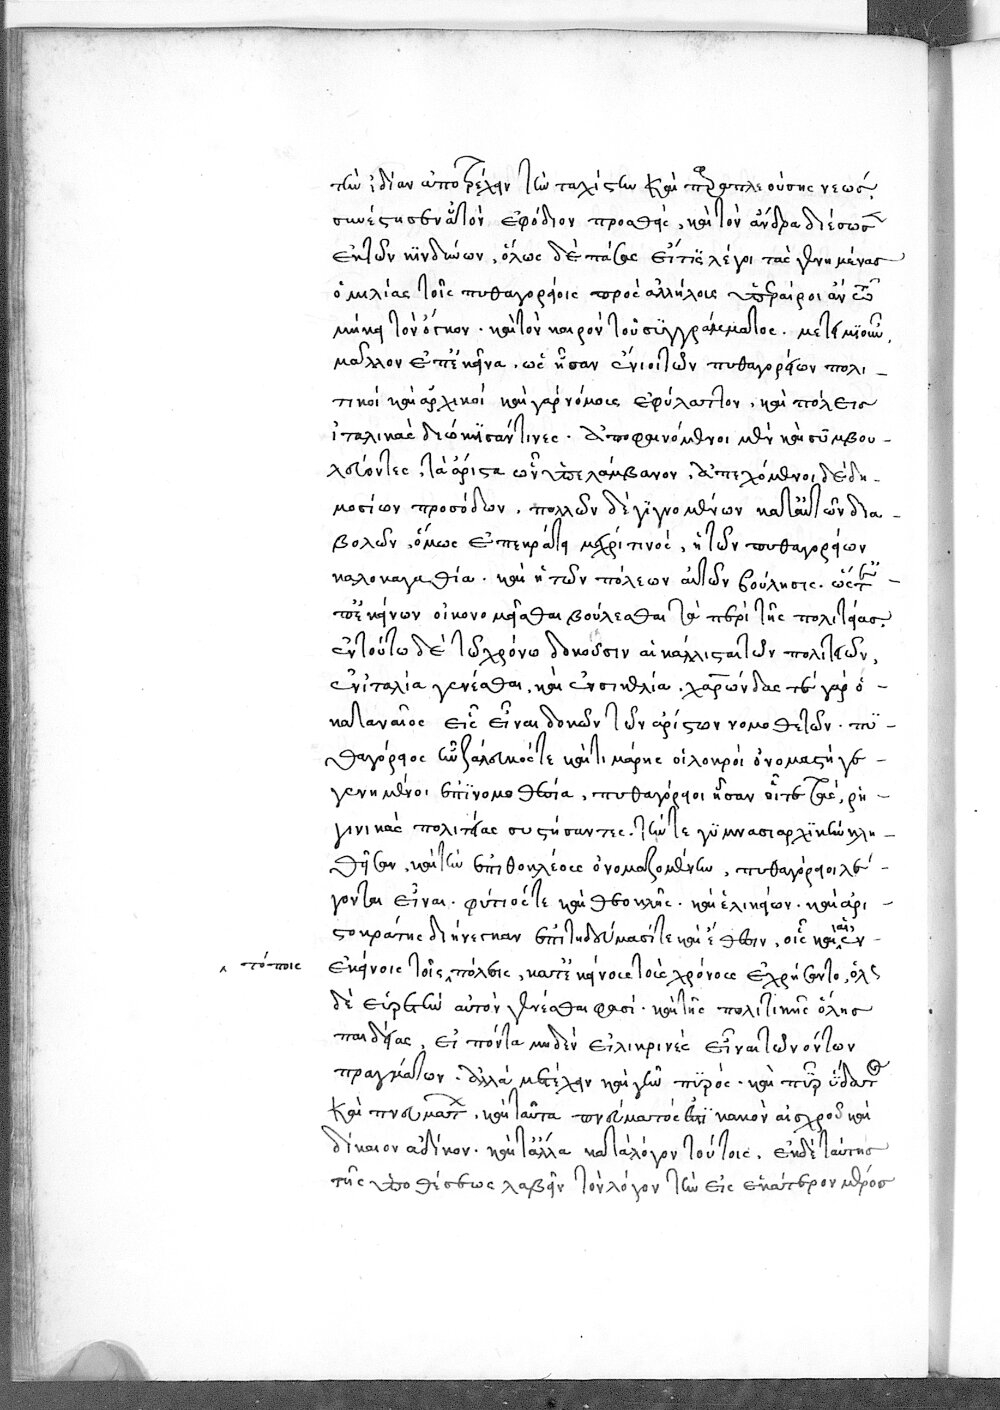 τὴν ἰδίαν ἀποτρέχειν τὴν ταχίστην καὶ παραπλεούσης νεώς,
συνέστησεν αὐτὸν ἐφόδιον προσθείς, καὶ τὸν ἄνδρα διέσωσεν
ἐκ τῶν κινδύνων, ὅλως δὲ πάσας εἴ τις λέγοι τὰς γενομένας
ὁμιλίας τοῖς πυθαγορείοις πρὸς ἀλλήλους ὑπεραίροι ἂν τῶ
μήκει τὸν ὄγκον. καὶ τὸν καιρὸν τοῦ συγγράμματος. μέτειμι οὖν
μᾶλλον ἐπ' ἐκεῖνα, ὡς ἦσαν ἔνιοι τῶν πυθαγορείων πολι-
τικοὶ καὶ ἀρχικοί καὶ γὰρ νόμους ἐφύλαττον, καὶ πόλεις
ἰταλικὰς διώκησάν τινες. ἀποφαινόμενοι μὲν καὶ συμβου-
λεύοντες, τὰ ἄριστα ὧν ὑπελάμβανον, ἀπεχόμενοι δὲ δη-
μοσίων προσόδων, πολλῶν δὲ γιγνομένων κατ' αὐτῶν δια-
βολῶν, ὅμως ἐπεκράτει μέχρι τινὸς, ἡ τῶν πυθαγορείων
καλοκαγαθία. καὶ ἡ τῶν πόλεων αὐτῶν βούλησις. ὥστε -
ὑπ' ἐκείνων οἰκονομεῖσθαι βούλεσθαι τὰ περὶ τῆς πολιτείας,
ἐν τούτω δὲ τῶ χρόνω δοκοῦσιν αἱ κάλλισται τῶν πολιτειῶν,
ἐν ἰταλία γενέσθαι, καὶ ἐν σικελία. χαρώνδας τε γὰρ ὁ -
καταναῖος εἷς εἶναι δοκῶν τῶν ἀρίστων νομοθετῶν. πυ-
θαγόρειος ἦν ζάλευκός τε καὶ τιμάρης οἱ λοκροὶ ὀνομαστοὶ γε-
γενημένοι ἐπὶ νομοθεσία, πυθαγόρειοι ἦσαν οἵ τε τὰς ῥη-
γινικὰς πολιτείας συστήσαντες. τήν τε γυμνασιαρχικὴν κλη-
θεῖσαν, καὶ τὴν ἐπὶ θοκλέους ὀνομαζομένην, πυθαγόρειοι λέ-
γονται εἶναι. φύτιός τε καὶ θεοκλῆς. καὶ ἑλικάων. καὶ ἀρι-
στοκράτης διήνεγκαν ἐπιτηδεύμασί τε καὶ ἔθεσιν, οἷς καὶ αἱ ἐν -
ἐκείνοις τοῖς ‸ πόλεις, κατ' ἐκείνους τοὺς χρόνους ἐχρήσαντο, ὅλως
‸ τόποις
δὲ εὑρετὴν αὐτὸν γενέσθαι φασί. καὶ τῆς πολιτικῆς ὅλης
παιδείας, εἰπόντα μηδὲν εἰλικρινὲς εἶναι τῶν ὄντων
πραγμάτων. ἀλλὰ μετέχειν καὶ γῆν πυρός. καὶ πῦρ ὕδατος
καὶ πνεύματος, καὶ ταῦτα πνεύματος ἔτι κακὸν αἰσχροῦ καὶ
δίκαιον ἀδίκου. καὶ τἄλλα κατὰ λόγον τούτοις. ἐκ δὲ ταύτης
τῆς ὑποθέσεως λαβεῖν τὸν λόγον τὴν εἰς ἑκάτερον μέρος